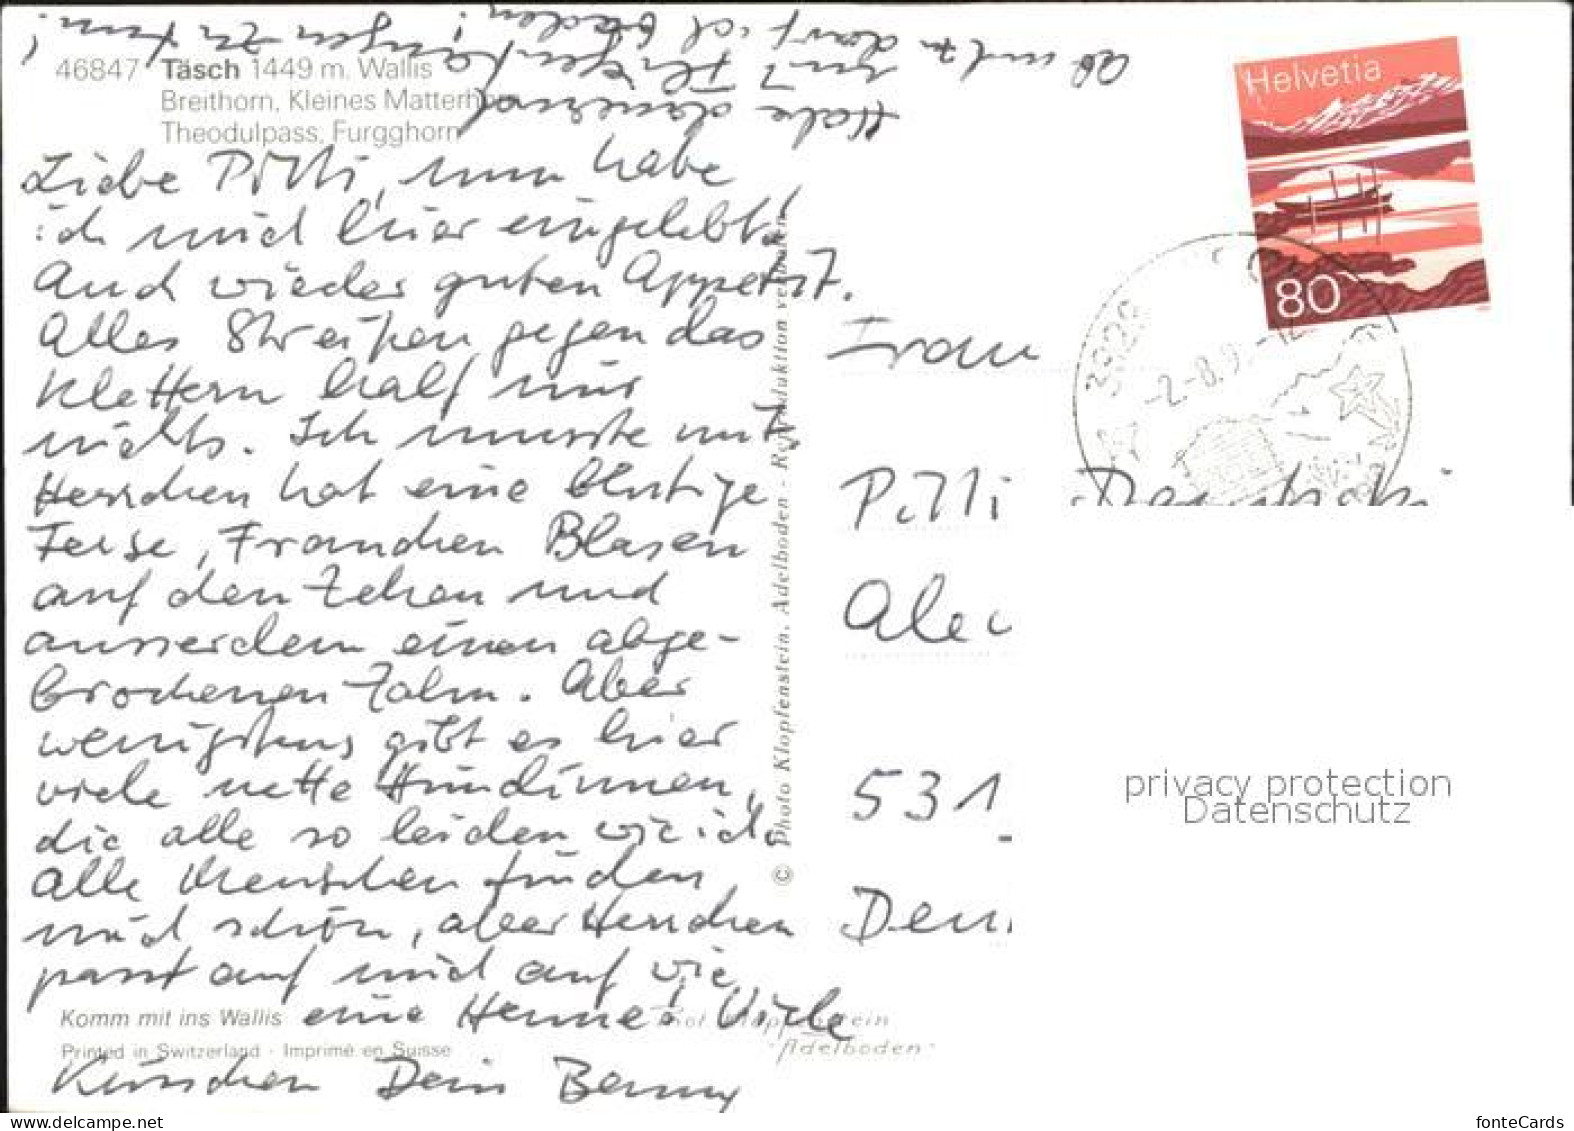 46847 Täsch 1449 m. Wallis
Breithorn, Kleines Matterhorn
Theodulpass, Furgghorn
Liebe Pitti, nun habe
ich mich hier eingelebt.
Auch wieder guten Appetit.
Alles Streiken gegen das
Klettern half mir
nichts. Ich musste mit,
Herrchen hat eine blutige
Ferse, Frauchen Blasen
auf den Zehen und
ausserdem einen abge-
brochenen Zahn. Aber
wenigstens gibt es hier
viele nette Hündinnen,
die alle so leiden wie ich,
alle Menschen finden
mich schön, aber Herrchen
passt auf mich auf wie
eine Henne! Viele
Küsschen Dein Benny
Habe dauernd
mit Fliegenfangen zu tun!
ab und zu darf ich baden!
Komm mit ins Wallis
Printed in Switzerland · Imprimé en Suisse
Klopfenstein
Adelboden
© Photo Klopfenstein, Adelboden - Reproduktion verboten
Helvetia
80
-2.-8.9 -12
Frau
Pitti
Alec
531
Den
privacy protection
Datenschutz
www.delcampe.net
fonteCards